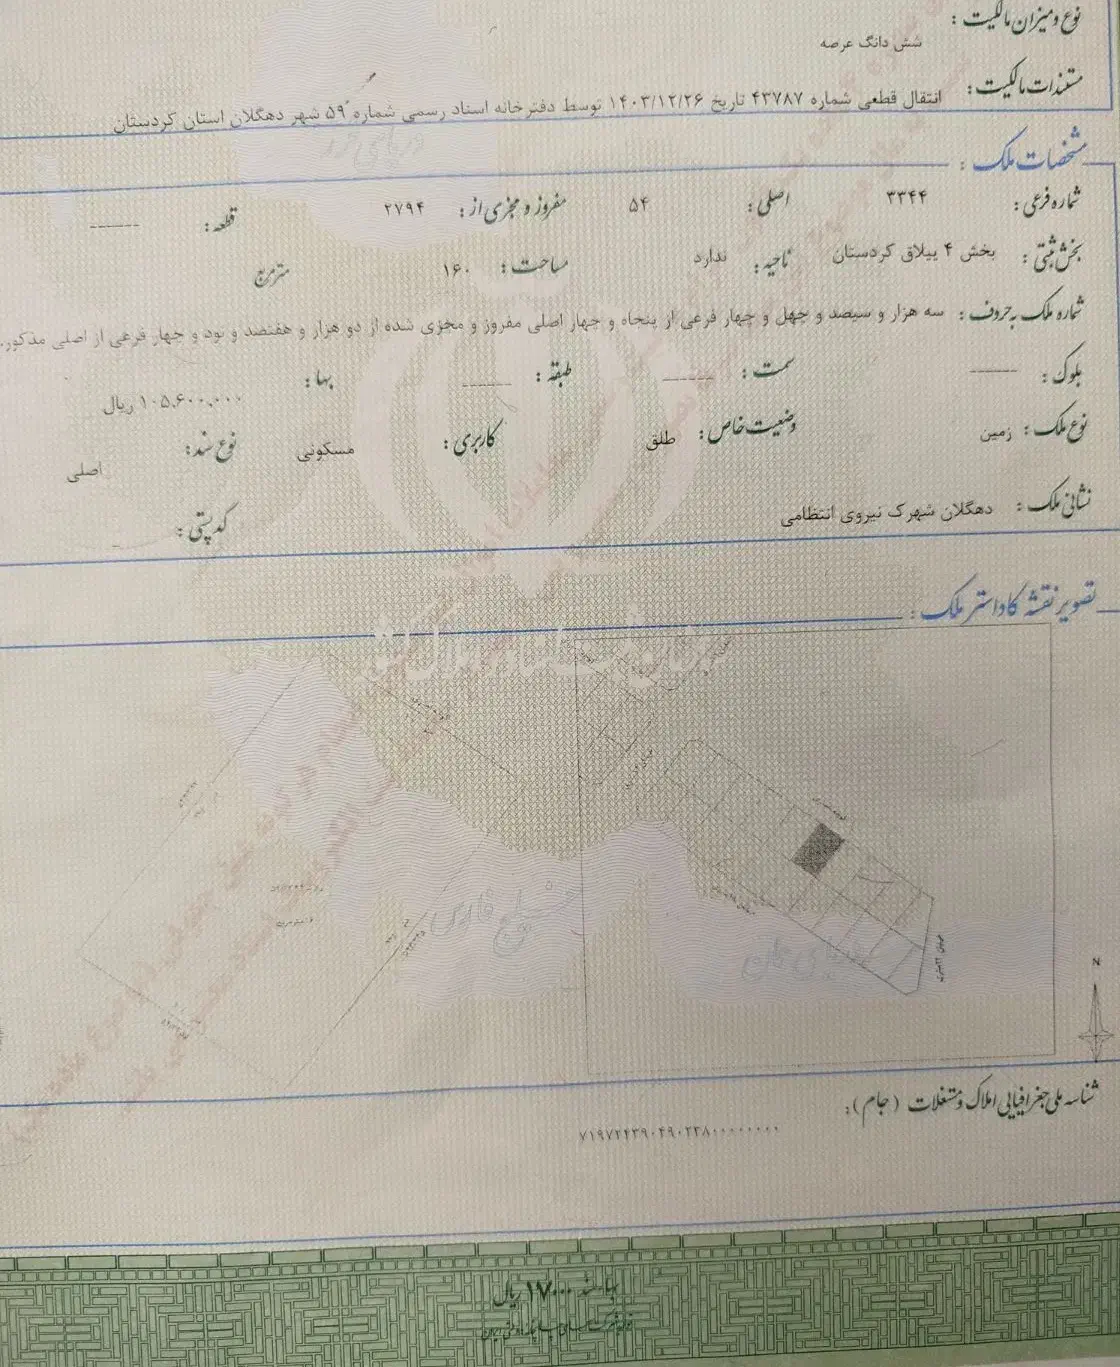 نوع و میزان مالکیت :
شش دانگ عرصه
مستندات مالکیت : انتقال قطعی شماره ۴۳۷۸۷ تاریخ ۱۴۰۳/۱۲/۲۶ توسط دفترخانه اسناد رسمی شماره ۵۹ شهر دهگلان استان کردستان
مشخصات ملک :
شماره فرعی : ۳۳۴۴ اصلی : ۵۴ مفروز و مجزی از : ۲۷۹۴ قطعه : ------
بخش ثبتی : بخش ۴ ییلاق کردستان ناحیه : ندارد مساحت : ۱۶۰ مترمربع
شماره ملک به حروف : سه هزار و سیصد و چهل و چهار فرعی از پنجاه و چهار اصلی مفروز و مجزی شده از دو هزار و هفتصد و نود و چهار فرعی از اصلی مذکور.
بلوک : ------ سمت : ------ طبقه : ------ بها : ۱۰۵,۶۰۰,۰۰۰ ریال
نوع ملک : زمین وضعیت خاص : طلق کاربری : مسکونی نوع سند : اصلی
نشانی ملک : دهگلان شهرک نیروی انتظامی کد پستی : -
تصویر نقشه کاداستر ملک :
خلیج فارس
دریای عمان
N
شناسه ملی جغرافیایی املاک و مستغلات (جام) :
بهاء سند ۱۷۰۰۰ ریال